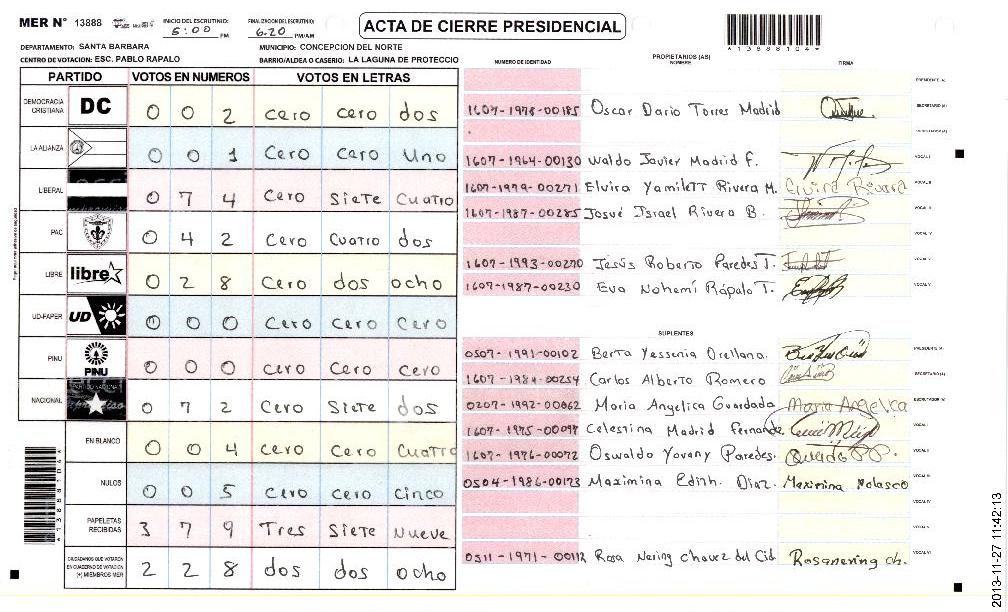 MER N° 13888
INICIO DEL ESCRUTINIO: 5:00 PM
FINALIZACION DEL ESCRUTINIO: 6.20 PM/AM
ACTA DE CIERRE PRESIDENCIAL
*13888104*
DEPARTAMENTO: SANTA BARBARA
MUNICIPIO: CONCEPCION DEL NORTE
CENTRO DE VOTACION: ESC. PABLO RAPALO
BARRIO/ALDEA O CASERIO: LA LAGUNA DE PROTECCIO
PARTIDO VOTOS EN NUMEROS VOTOS EN LETRAS
DEMOCRACIA CRISTIANA DC 0 0 2 cero cero dos
LA ALIANZA 0 0 1 Cero Cero Uno
LIBERAL 0 7 4 Cero Siete Cuatro
PAC 0 4 2 Cero Cuatro dos
LIBRE libre 0 2 8 Cero dos ocho
UD-FAPER UD 0 0 0 Cero Cero Cero
PINU PINU 0 0 0 Cero Cero Cero
NACIONAL 0 7 2 Cero Siete dos
EN BLANCO 0 0 4 Cero Cero Cuatro
NULOS 0 0 5 Cero Cero Cinco
PAPELETAS RECIBIDAS 3 7 9 Tres Siete Nueve
CIUDADANOS QUE VOTARON EN CUADERNO DE VOTACION (+) MIEMBROS MER 2 2 8 dos dos ocho
*13888104*
NUMERO DE IDENTIDAD PROPIETARIOS (AS) NOMBRE FIRMA
PRESIDENTE (A)
1607-1978-00185 Oscar Dario Torres Madrid SECRETARIO (A)
ESCRUTADOR (A)
1607-1964-00130 Waldo Javier Madrid F. VOCAL I
1607-1979-00271 Elvira Yamilett Rivera M. Elvira Rivera VOCAL II
1607-1987-00285 Josué Israel Rivera B. VOCAL III
VOCAL IV
1607-1993-00270 Jesús Roberto Paredes T. VOCAL V
1607-1987-00230 Eva Nohemí Rápalo T. VOCAL VI
SUPLENTES
0507-1991-00102 Berta Yessenia Orellana. PRESIDENTE (A)
1607-1984-00254 Carlos Alberto Romero SECRETARIO (A)
0207-1992-00062 Maria Angelica Guardada Maria Angelica ESCRUTADOR (A)
1607-1975-00097 Celestina Madrid Fernande VOCAL I
1607-1976-00072 Oswaldo Yovany Paredes. VOCAL II
0504-1986-00173 Maximina Edith. Diaz. Maximina Nolasco VOCAL III
VOCAL IV
VOCAL V
0311-1971-00112 Rosa Nering Chavez del Cid Rosanering ch. VOCAL VI
2013-11-27 11:42:13